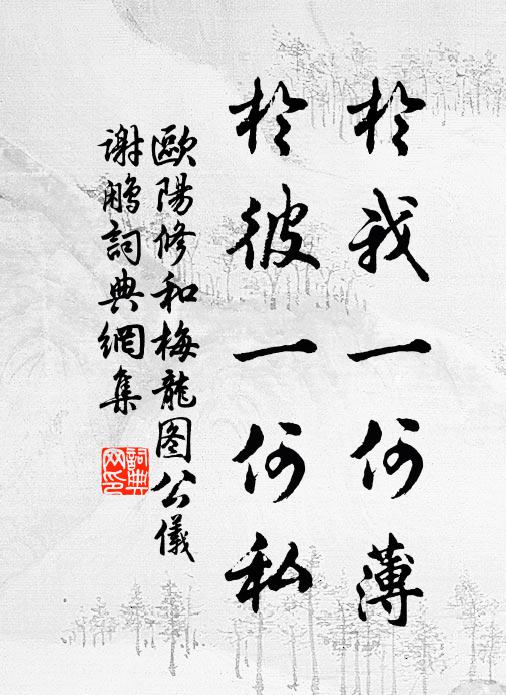 於我一何薄
於彼一何私
歐陽修和梅龍图公儀
謝鵬詞典網集
詞典网印